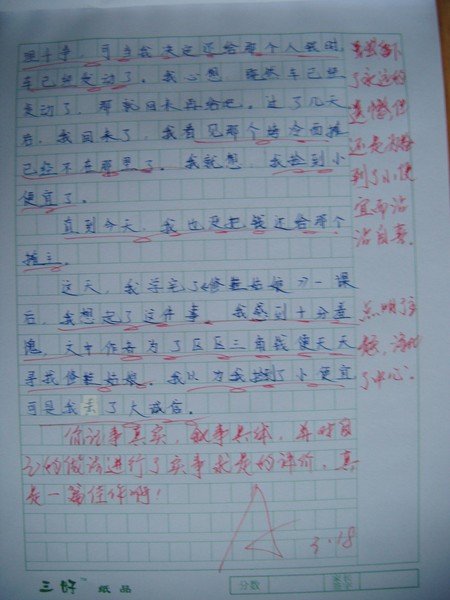 想斗争，可当我决定还给那个人钱时，
车已经发动了。我心想，既然车已经
发动了，那就回来再给吧。过了几天
后，我回来了，我看见那个烤冷面摊
已经不在那里了。我就想，我捡到小
便宜了。
直到今天，我也没把钱还给那个
摊主。
这天，我学完了《修鞋姑娘》一课
后，我想起了这件事，我感到十分羞
愧，文中作者为了区区三角钱使天天
寻我修鞋姑娘。我以为我捡了小便宜
可是我丢了大诚信。
了永远的
遗憾，但
还是为
到了小便
宜而沾
沾自喜。
点明了主
题，
了中心。
你记事真实，叙事具体，并对自
己的做法进行了实事求是的评价，真
是一篇佳作啊！
A
3.18
三好 纸品
分数